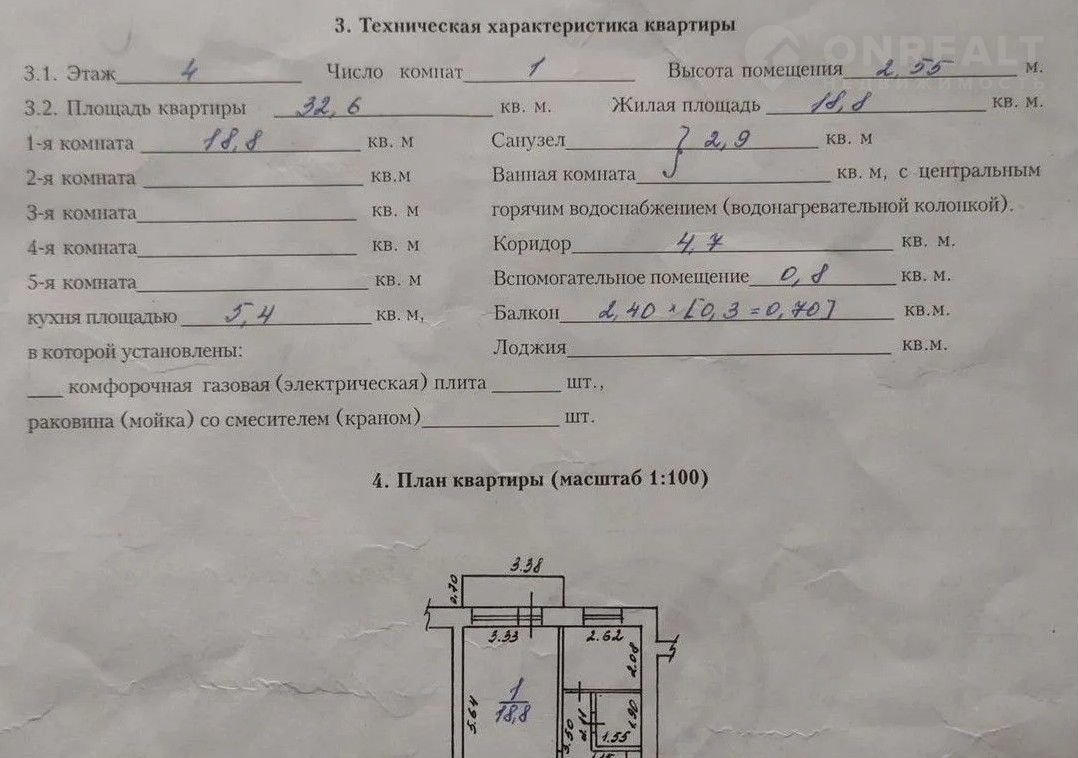 3. Техническая характеристика квартиры
ONREALT
3.1. Этаж 4 Число комнат 1 Высота помещения 2,55 м.
3.2. Площадь квартиры 32,6 кв. м. Жилая площадь 18,8 кв. м.
1-я комната 18,8 кв. м Санузел } 2,9 кв. м
2-я комната кв.м Ванная комната кв. м, с центральным
3-я комната кв. м горячим водоснабжением (водонагревательной колонкой).
4-я комната кв. м Коридор 4,7 кв. м.
5-я комната кв. м Вспомогательное помещение 0,8 кв. м.
кухня площадью 5,4 кв. м, Балкон 2,40 × [0,3 = 0,70] кв.м.
в которой установлены: Лоджия кв.м.
комфорочная газовая (электрическая) плита шт.,
раковина (мойка) со смесителем (краном) шт.
4. План квартиры (масштаб 1:100)
3.38
0.70
3.33 2.62
2.08
1
18,8
5.64
3.50
2.11
1.55
1.90